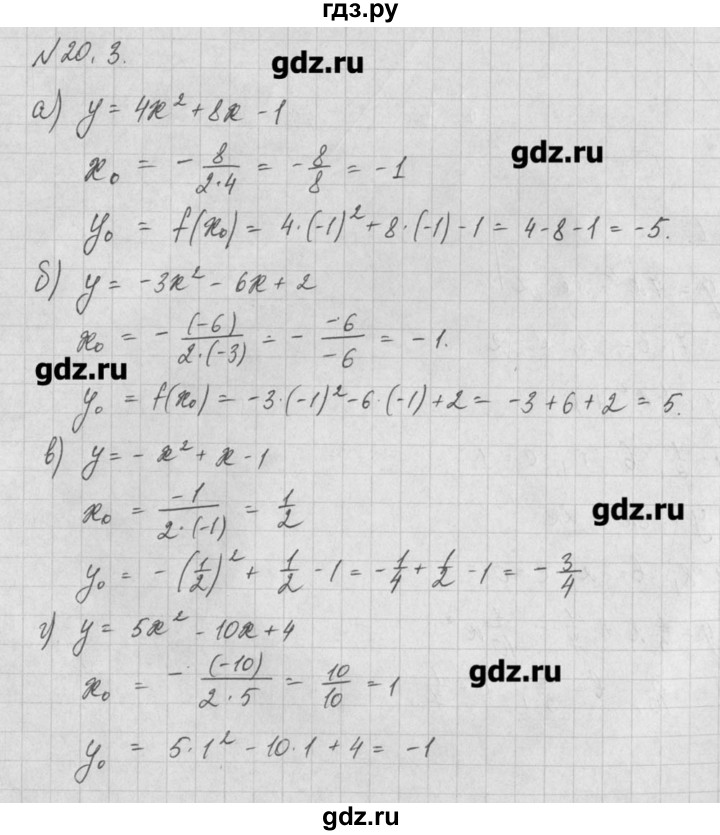 гдз.ру
№20.3.
gdz.ru
а) y = 4x² + 8x - 1
gdz.ru
x₀ = - 8/(2·4) = - 8/8 = -1
y₀ = f(x₀) = 4·(-1)² + 8·(-1) - 1 = 4 - 8 - 1 = -5.
б) y = -3x² - 6x + 2
x₀ = - (-6)/(2·(-3)) = - (-6)/(-6) = -1.
gdz.ru
y₀ = f(x₀) = -3·(-1)² - 6·(-1) + 2 = -3 + 6 + 2 = 5.
в) y = - x² + x - 1
x₀ = -1/(2·(-1)) = 1/2
gdz.ru
y₀ = - (1/2)² + 1/2 - 1 = - 1/4 + 1/2 - 1 = - 3/4
г) y = 5x² - 10x + 4
x₀ = - (-10)/(2·5) = 10/10 = 1
gdz.ru
y₀ = 5·1² - 10·1 + 4 = -1
gdz.ru